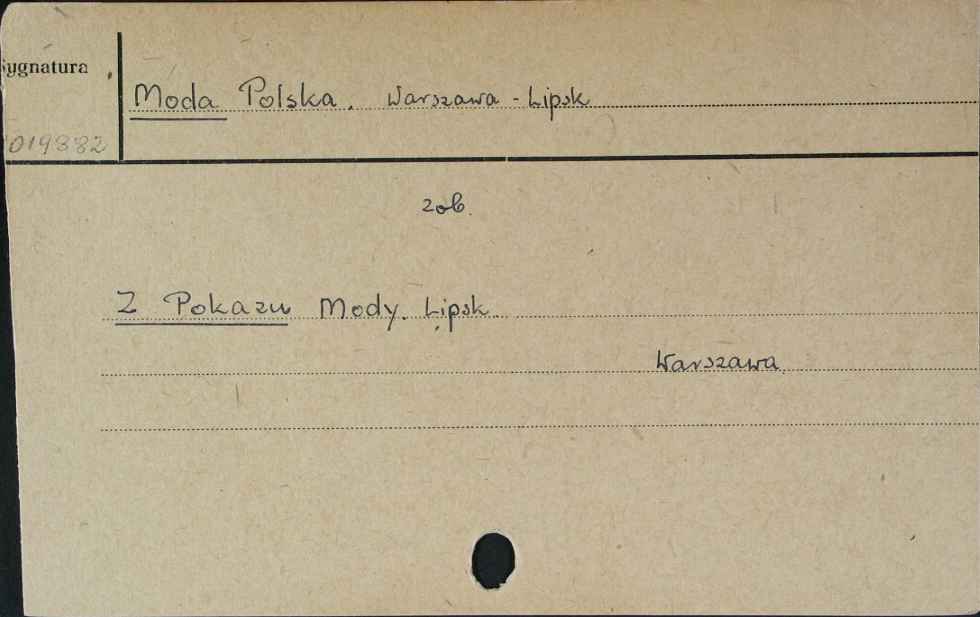 Sygnatura
Moda Polska. Warszawa - Lipsk
019882
zob.
Z Pokazu Mody. Lipsk.
Warszawa